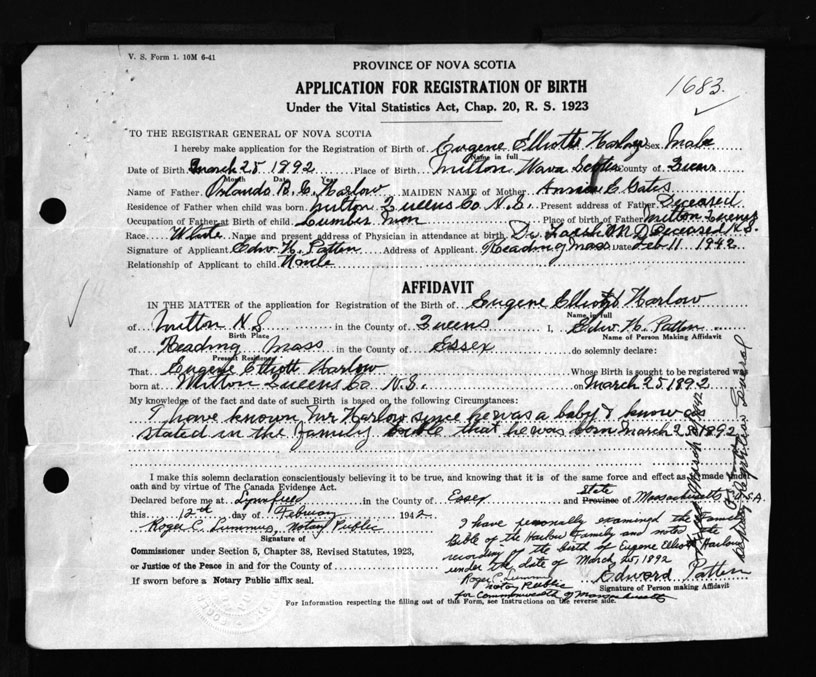 V. S. Form 1. 10M 6-41
PROVINCE OF NOVA SCOTIA
APPLICATION FOR REGISTRATION OF BIRTH
Under the Vital Statistics Act, Chap. 20, R. S. 1923
1683
TO THE REGISTRAR GENERAL OF NOVA SCOTIA
I hereby make application for the Registration of Birth of Eugene Elliott Harlow Sex Male
Name in full
Date of Birth March 25 1892 Place of Birth Milton Nova Scotia County of Queens
Month Date Year
Name of Father Orlando B. C. Harlow MAIDEN NAME of Mother Annie C Gates
Residence of Father when child was born Milton Queens Co. N.S. Present address of Father Deceased
Occupation of Father at Birth of child Lumber Man Place of birth of Father Milton Queens
Race White Name and present address of Physician in attendance at birth Dr. Farish M D Deceased N.S.
Signature of Applicant Edw. H. Patten Address of Applicant Reading Mass Date Feb 11 1942
Relationship of Applicant to child None
AFFIDAVIT
IN THE MATTER of the application for Registration of the Birth of Eugene Elliott Harlow
Name in full
of Milton N S in the County of Queens I, Edw. H. Patten
Birth Place Name of Person Making Affidavit
of Reading Mass in the County of Essex do solemnly declare:
Present Residence
That Eugene Elliott Harlow Whose Birth is sought to be registered was
born at Milton Queens Co. N.S. on March 25 1892
My knowledge of the fact and date of such Birth is based on the following Circumstances:
I have known Mr Harlow since he was a baby & know as
stated in the family bible that he was born March 25 1892
I make this solemn declaration conscientiously believing it to be true, and knowing that it is of the same force and effect as if made under
oath and by virtue of The Canada Evidence Act.
Declared before me at Lynnfield in the County of Essex State and Province of Massachusetts USA
this 12th day of February 1942
Roger C. Lummus, Notary Public
Signature of
Commissioner under Section 5, Chapter 38, Revised Statutes, 1923,
or Justice of the Peace in and for the County of
If sworn before a Notary Public affix seal.
I have personally examined the Family
Bible of the Harlow Family and note the
recording of the birth of Eugene Elliott Harlow
under the date of March 25, 1892
Roger C Lummus
Notary Public
for Commonwealth of Massachusetts
Edward Patten
Signature of Person making Affidavit
For Information respecting the filling out of this Form, see Instructions on the reverse side.
Deputy Registrar General